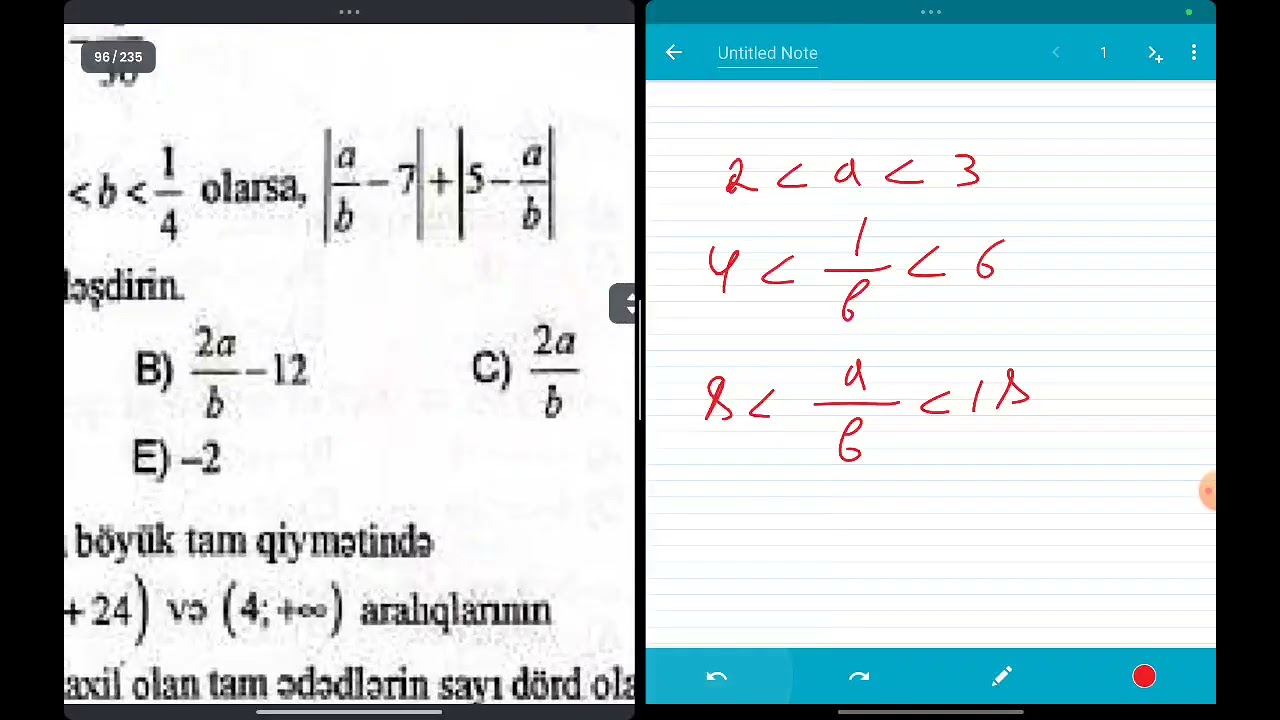 96/235
< b < 1/4 olarsa, |a/b − 7| + |5 − a/b|
ləşdirin.
B) 2a/b − 12 C) 2a/b
E) −2
böyük tam qiymətində
+ 24) və (4; +∞) aralıqlarının
axil olan tam ədədlərin sayı dörd ola
Untitled Note
1
2 < a < 3
4 < 1/b < 6
8 < a/b < 18